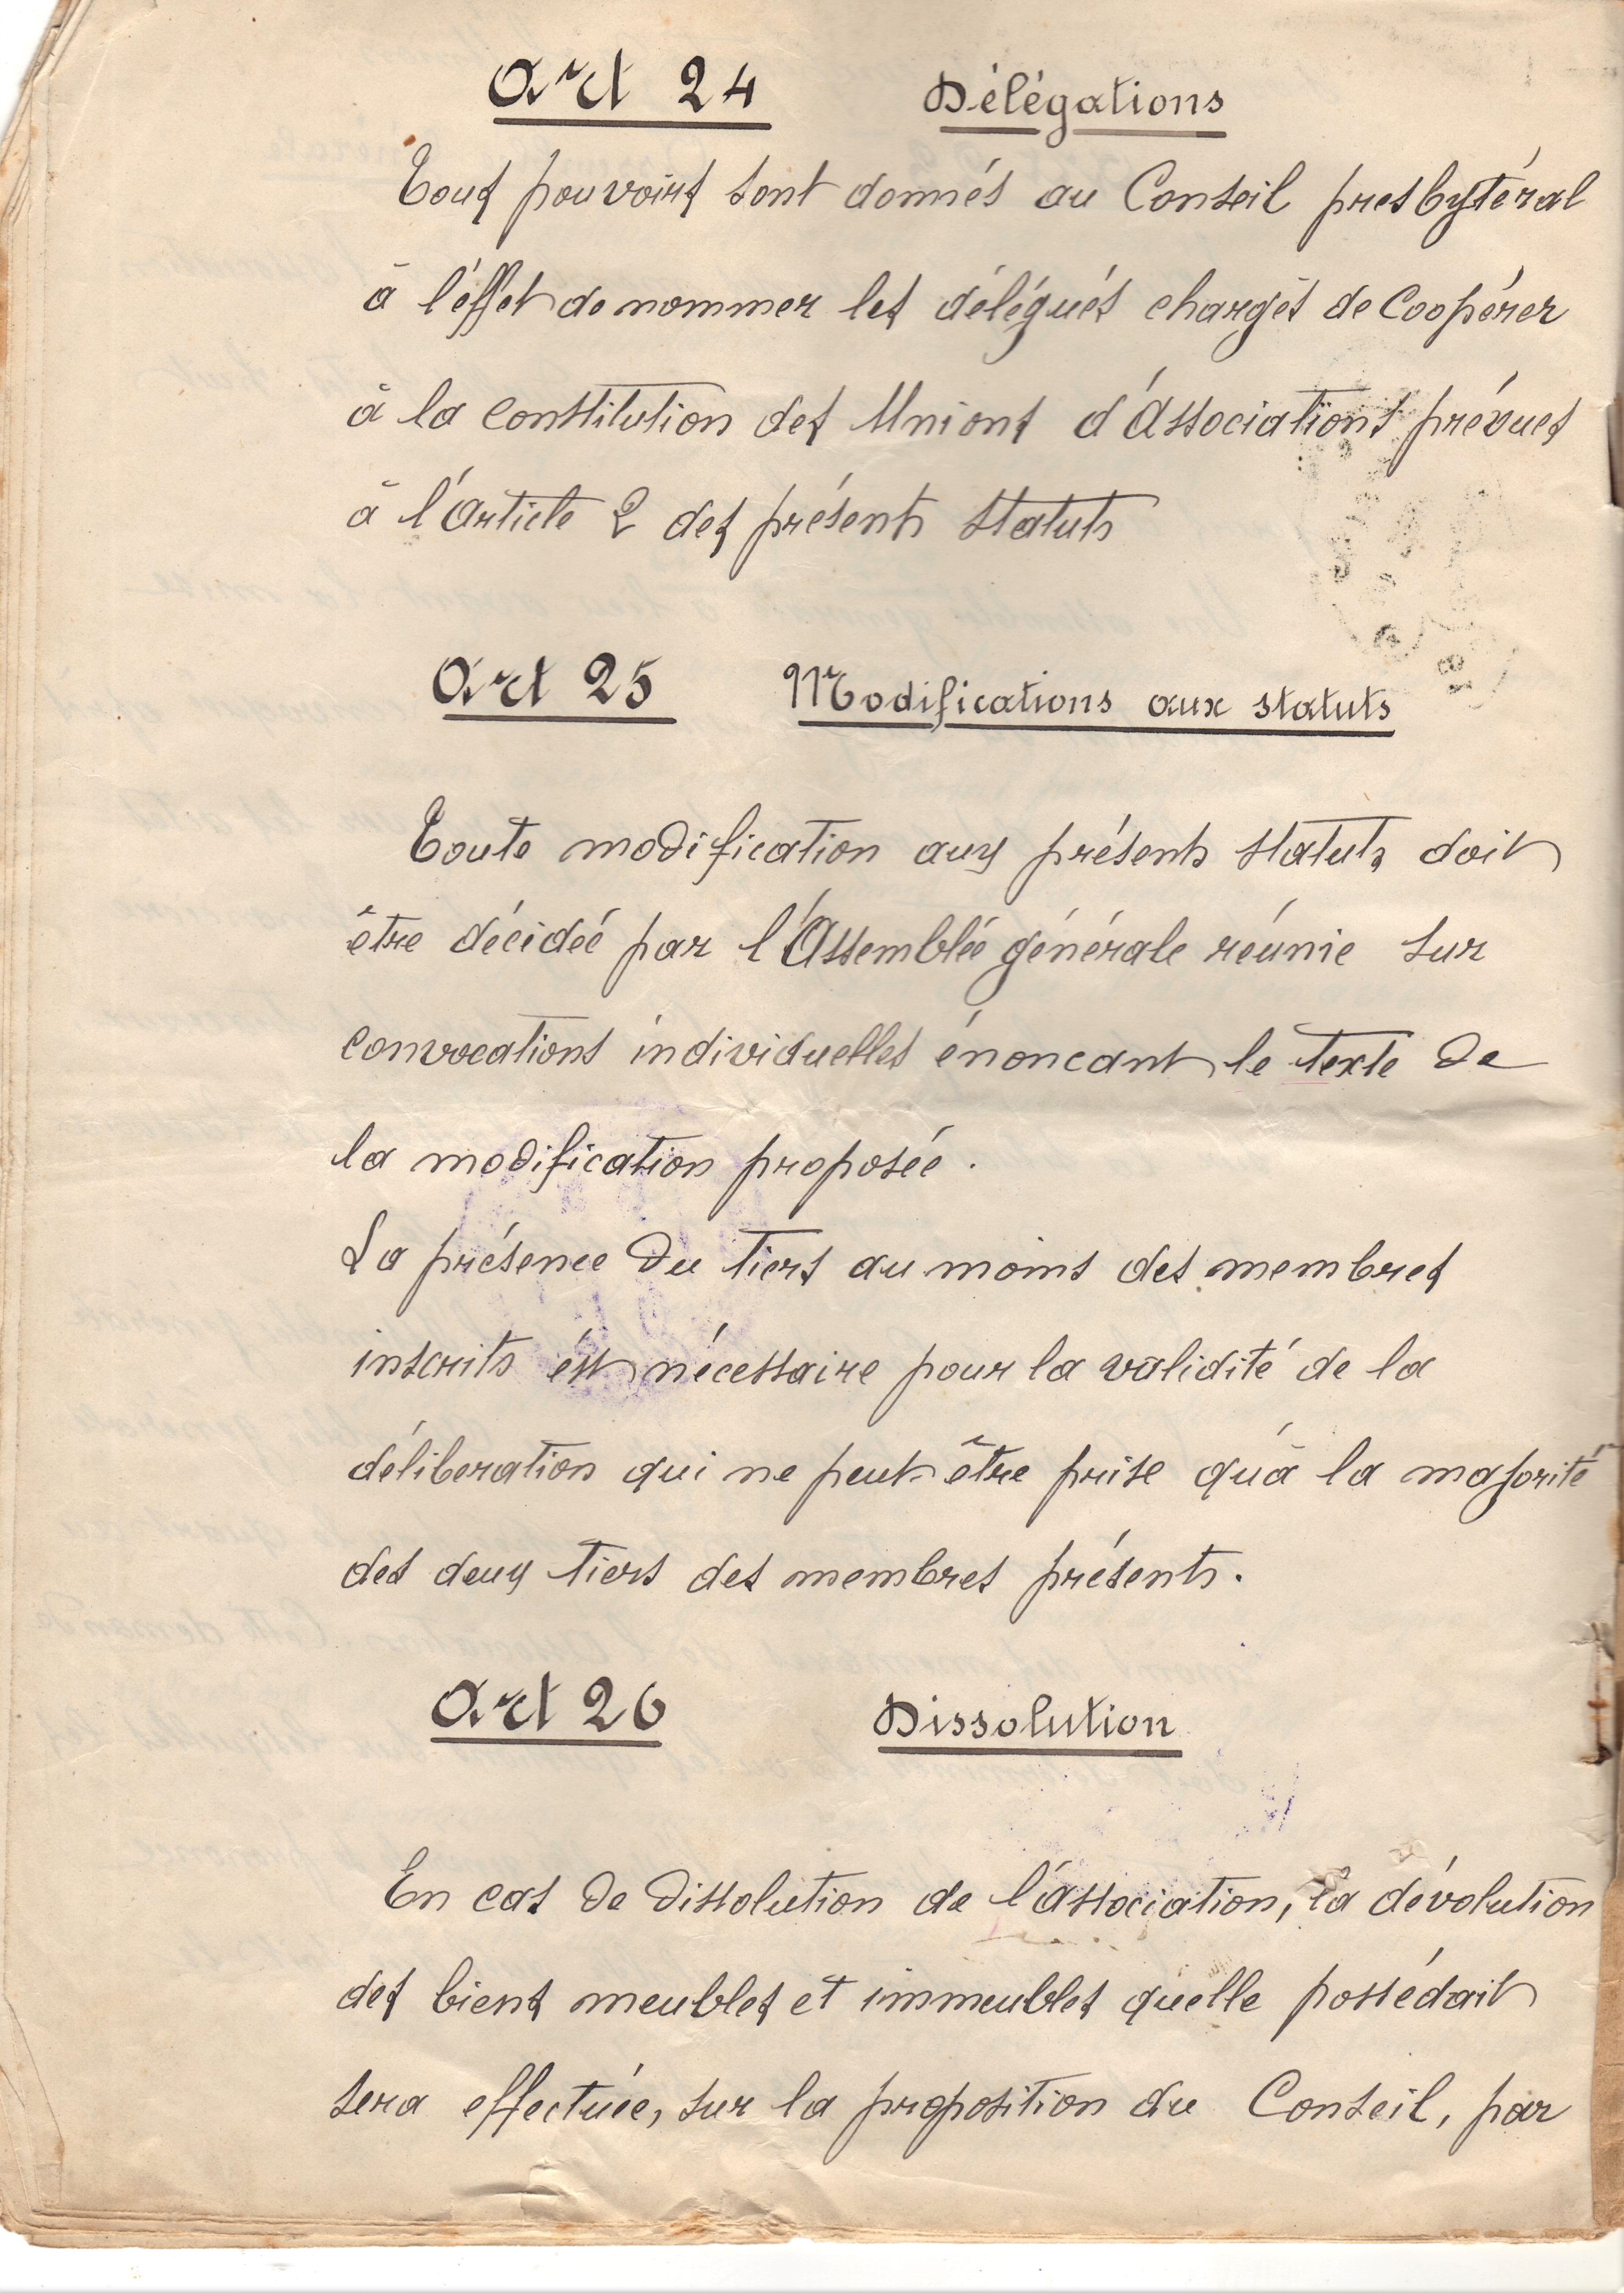 Art 24 Délégations
Tous pouvoirs sont donnés au Conseil presbytéral
à l'éffet de nommer les délégués chargés de Coopérer
à la constitution des Unions d'Associations prévues
à l'Article 2 des présents statuts
Art 25 Modifications aux statuts
Toute modification aux présents statuts doit
être décidée par l'Assemblée générale réunie sur
convocations individuelles énoncant le texte de
la modification proposée.
La présence du tiers au moins des membres
inscrits est nécessaire pour la validité de la
déliberation qui ne peut être prise qu'à la majorité
des deux tiers des membres présents.
Art 26 Dissolution
En cas de dissolution de l'association, la dévolution
des biens meubles et immeubles qu'elle possédait
sera effectuée, sur la proposition du Conseil, par